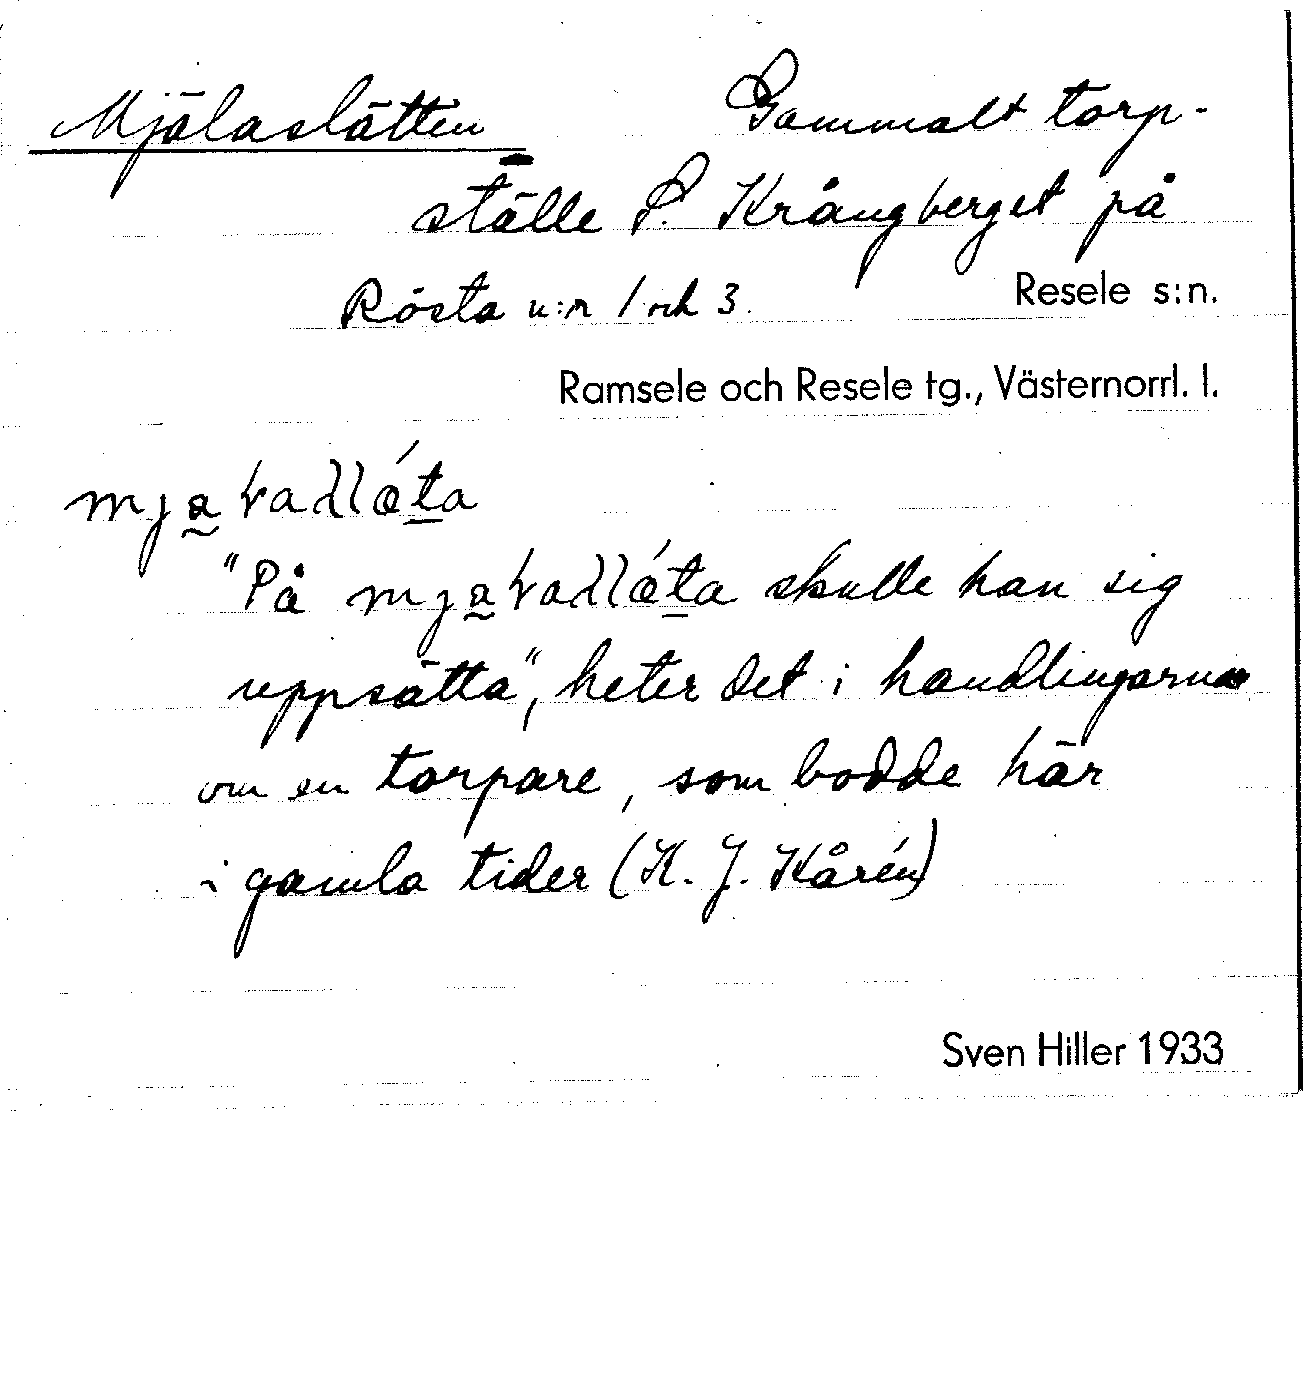 Mjälaslätten Gammalt torp-
ställe S. Krångberget på
Rösta n:r 1 och 3. Resele s:n.
Ramsele och Resele tg., Västernorrl. l.
"På skulle han sig
uppsätta", heter det i handlingarna
om en torpare, som bodde här
i gamla tider (K. J. Kårén)
Sven Hiller 1933